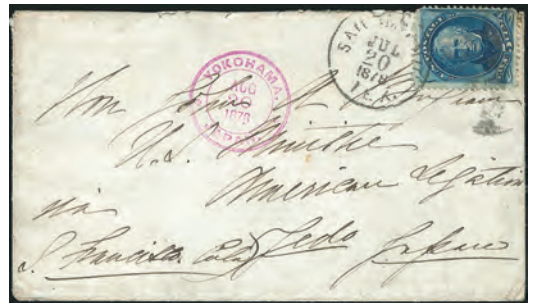 SAN
JUL
20
1878
TEX.
YOKOHAMA,
AUG
28
1878
JAPAN
Hon John A Bingham
U.S. Minister
American Legation
via
S. Francisco Cala Yedo Japan